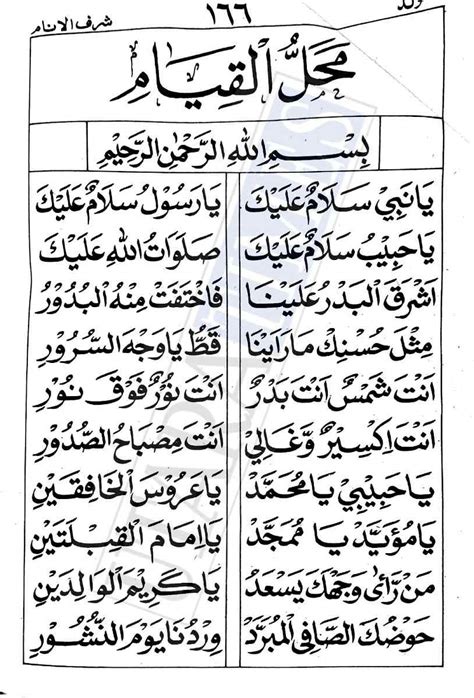 ولد ١٦٦ شرف الانام
مَحَلُّ الْقِيَامِ
بِسْمِ اللهِ الرَّحْمٰنِ الرَّحِيْمِ
يَا نَبِيْ سَلَامٌ عَلَيْكَ يَا رَسُوْلْ سَلَامٌ عَلَيْكَ
يَا حَبِيْبُ سَلَامٌ عَلَيْكَ صَلَوَاتُ اللهِ عَلَيْكَ
اَشْرَقَ الْبَدْرُ عَلَيْنَا فَاخْتَفَتْ مِنْهُ الْبُدُوْرُ
مِثْلَ حُسْنِكَ مَا رَاَيْنَا قَطُّ يَا وَجْهَ السُّرُوْرِ
اَنْتَ شَمْسٌ اَنْتَ بَدْرٌ اَنْتَ نُوْرٌ فَوْقَ نُوْرِ
اَنْتَ اِكْسِيْرٌ وَّغَالِيْ اَنْتَ مِصْبَاحُ الصُّدُوْرِ
يَا حَبِيْبِيْ يَا مُحَمَّدْ يَا عَرُوْسَ الْخَافِقَيْنِ
يَا مُؤَيَّدْ يَا مُمَجَّدْ يَا اِمَامَ الْقِبْلَتَيْنِ
مَنْ رَّاٰى وَجْهَكَ يَسْعَدْ يَا كَرِيْمَ الْوَالِدَيْنِ
حَوْضُكَ الصَّافِى الْمُبَرَّدْ وِرْدُنَا يَوْمَ النُّشُوْرِ